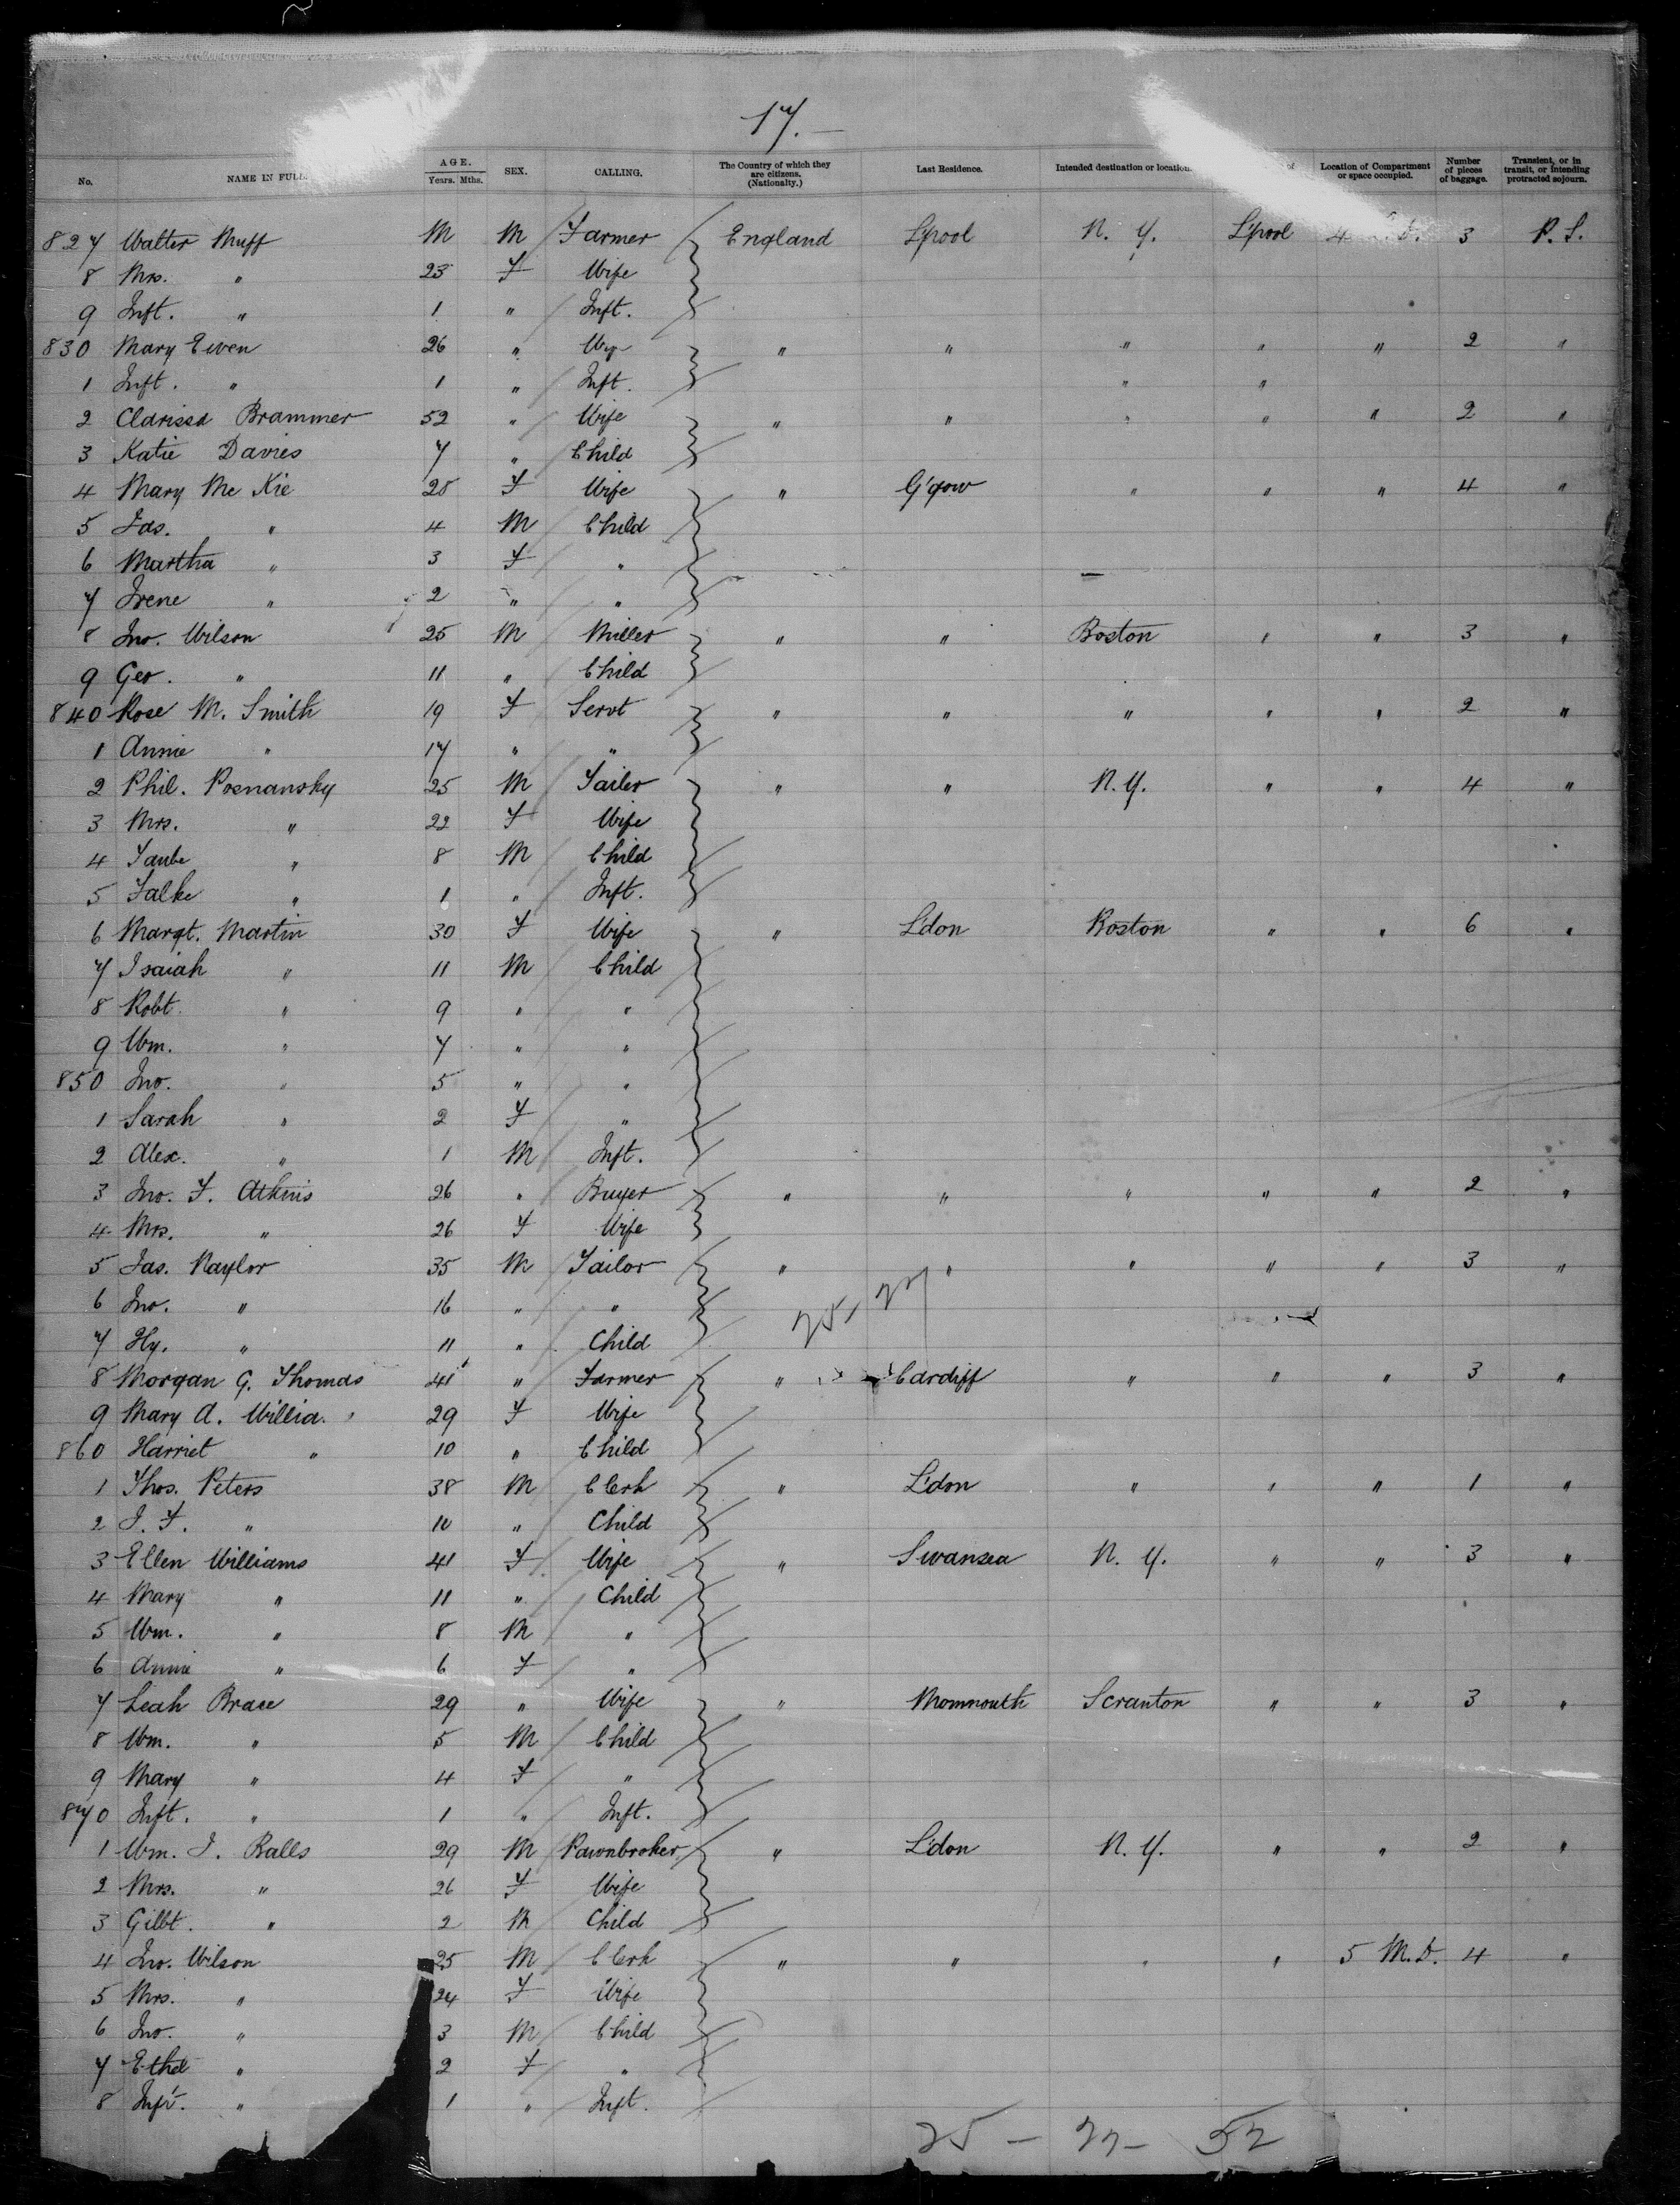 17.
No. NAME IN FULL AGE. Years. Mths. SEX. CALLING. The Country of which they are citizens. (Nationalty.) Last Residence. Intended destination or location. of Location of Compartment or space occupied. Number of pieces of baggage. Transient, or in transit, or intending protracted sojourn.
827 Walter Muff M M Farmer England L'pool N. Y. L'pool 4 D. 3 P. S.
8 Mrs. " 23 F Wife
9 Inft. " 1 " Inft.
830 Mary Ewen 26 " Wife " " " " " 2 "
1 Inft. " 1 " Inft. " "
2 Clarissa Brammer 52 " Wife " " " " " 2 "
3 Katie Davies 7 " Child
4 Mary Mc Kie 25 F Wife " G'gow " " " 4 "
5 Jas. " 4 M Child
6 Martha " 3 F "
7 Irene " 2 " "
8 Jno. Wilson 25 M Miller " " Boston " " 3 "
9 Geo. " 11 " Child
840 Rose M. Smith 19 F Servt " " " " " 2 "
1 Annie " 17 " "
2 Phil. Posnansky 25 M Tailor " " N.Y. " " 4 "
3 Mrs. " 22 F Wife
4 Taube " 8 M Child
5 Falke " 1 " Inft.
6 Margt. Martin 30 F Wife " L'don Boston " " 6 "
7 Isaiah " 11 M Child
8 Robt. " 9 " "
9 Wm. " 7 " "
850 Jno. " 5 " "
1 Sarah " 2 F "
2 Alex. " 1 M Inft.
3 Jno. F. Atkins 26 " Buyer " " " " " 2 "
4 Mrs. " 26 F Wife
5 Jas. Naylor 35 M Tailor " " " " " 3 "
6 Jno. " 16 " "
25, 27
7 Hy. " 11 " Child
8 Morgan G. Thomas 41 " Farmer " Cardiff " " " 3 "
9 Mary A. Willia. 29 F Wife
860 Harriet " 10 " Child
1 Thos. Peters 38 M Clerk " L'don " " " 1 "
2 J. F. " 10 " Child
3 Ellen Williams 41 F Wife " Swansea N. Y. " " 3 "
4 Mary " 11 " Child
5 Wm. " 8 M "
6 Annie " 6 F "
7 Leah Brace 29 " Wife " Monmouth Scranton " " 3 "
8 Wm. " 5 M Child
9 Mary " 4 F "
870 Inft. " 1 " Inft.
1 Wm. J. Ralls 29 M Pawnbroker " L'don N. Y. " " 2 "
2 Mrs. " 26 F Wife
3 Gilbt. " 2 M Child
4 Jno. Wilson 25 M Clerk " " " " 5 M.D. 4 "
5 Mrs. " 24 F Wife
6 Jno. " 3 M Child
7 Ethel " 2 F "
8 Inft. " 1 " Inft.
25 - 27 - 52